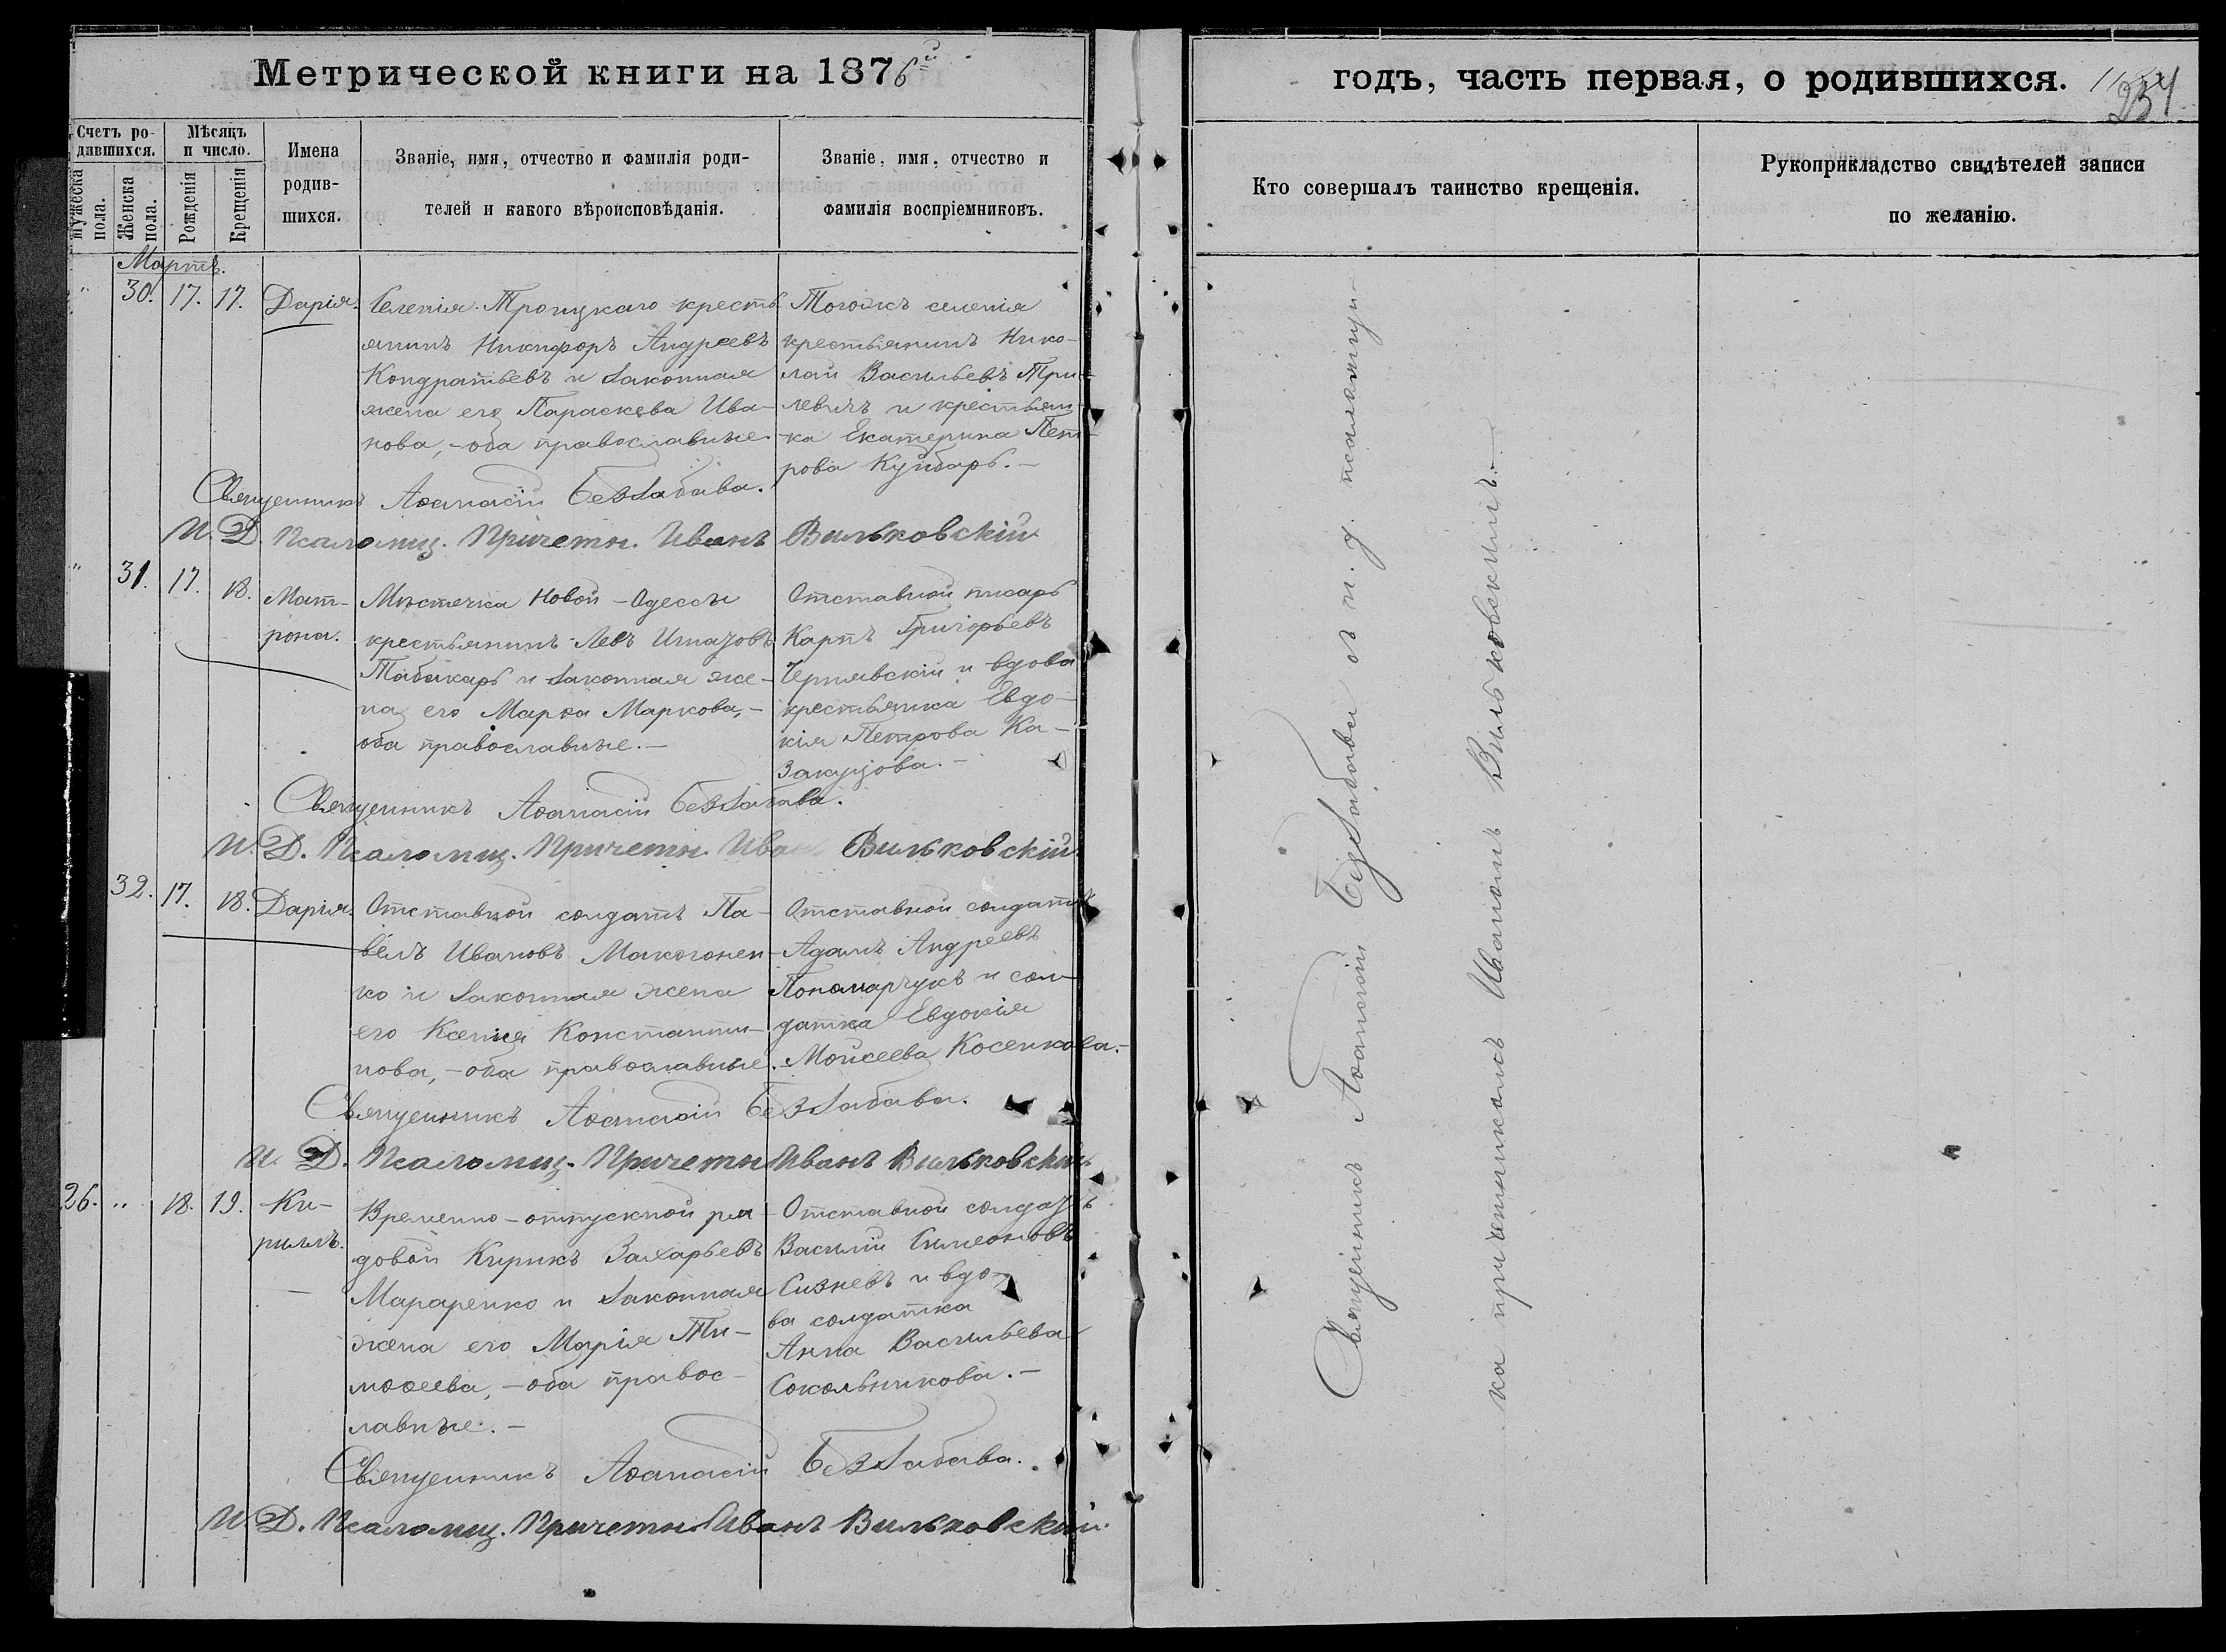 Метрической книги на 1876й
годъ, часть первая, о родившихся.
234
Счетъ ро-
дившихся.
Мужеска
пола.
Женска
пола.
Мѣсяцъ
и число.
Рожденія
Крещенія
Имена
родив-
шихся.
Званіе, имя, отчество и фамилія роди-
телей и какого вѣроисповѣданія.
Званіе, имя, отчество и
фамилія воспріемниковъ.
Кто совершалъ таинство крещенія.
Рукоприкладство свидѣтелей записи
по желанію.
Мартъ.
" 30. 17. 17.
Дарія.
Селенія Троицкаго кресть
янинъ Никифоръ Андреевъ
Кондратьевъ и законная
жена его Параскева Ива-
нова, - оба православные.
Тогожъ селенія
крестьянинъ Нико-
лай Васильевъ Три-
левичъ и крестьян-
ка Екатерина Пет-
рова Куйбарь. -
Священникъ Аѳанасій Беззабава.
И. Д. Псаломщ. Причетн. Иванъ Вильковскій
" 31. 17. 18.
Мат-
рона.
Мѣстечка Новой-Одессы
крестьянинъ Левъ Игнатовъ
Табакарь и законная же-
на его Марѳа Маркова, -
оба православные. -
Отставной писарь
Карпъ Григорьевъ
Чернявскій и вдова
крестьянка Евдо-
кія Петрова Ка-
закуцова. -
Священникъ Аѳанасій Беззабава.
И. Д. Псаломщ. Причетн. Иванъ Вильковскій
32. 17. 18.
Дарія.
Отставной солдатъ Па-
велъ Ивановъ Макогонен-
ко и законная жена
его Ксенія Константи-
нова, - оба православные.
Отставной солдатъ
Адамъ Андреевъ
Пономарчукъ и сол-
датка Евдокія
Мойсеева Косенкова. -
Священникъ Аѳанасій Беззабава.
И. Д. Псаломщ. Причетн Иванъ Вильковскій
26. " 18. 19.
Ки-
риллъ.
Временно-отпускной ря-
довой Кирикъ Захарьевъ
Мараренко и законная
жена его Марія Ти-
моѳеева, - оба правос-
лавные. -
Отставной солдатъ
Василій Симеоновъ
Сизневъ и вдо-
ва солдатка
Анна Васильева
Сокольникова. -
Священникъ Аѳанасій Беззабава.
И. Д. Псаломщ. Причетн Иванъ Вильковскій
Священникъ Аѳанасій Беззабава съ и. д. псаломщи-
ка причетникомъ Иваномъ Вильковскимъ. -